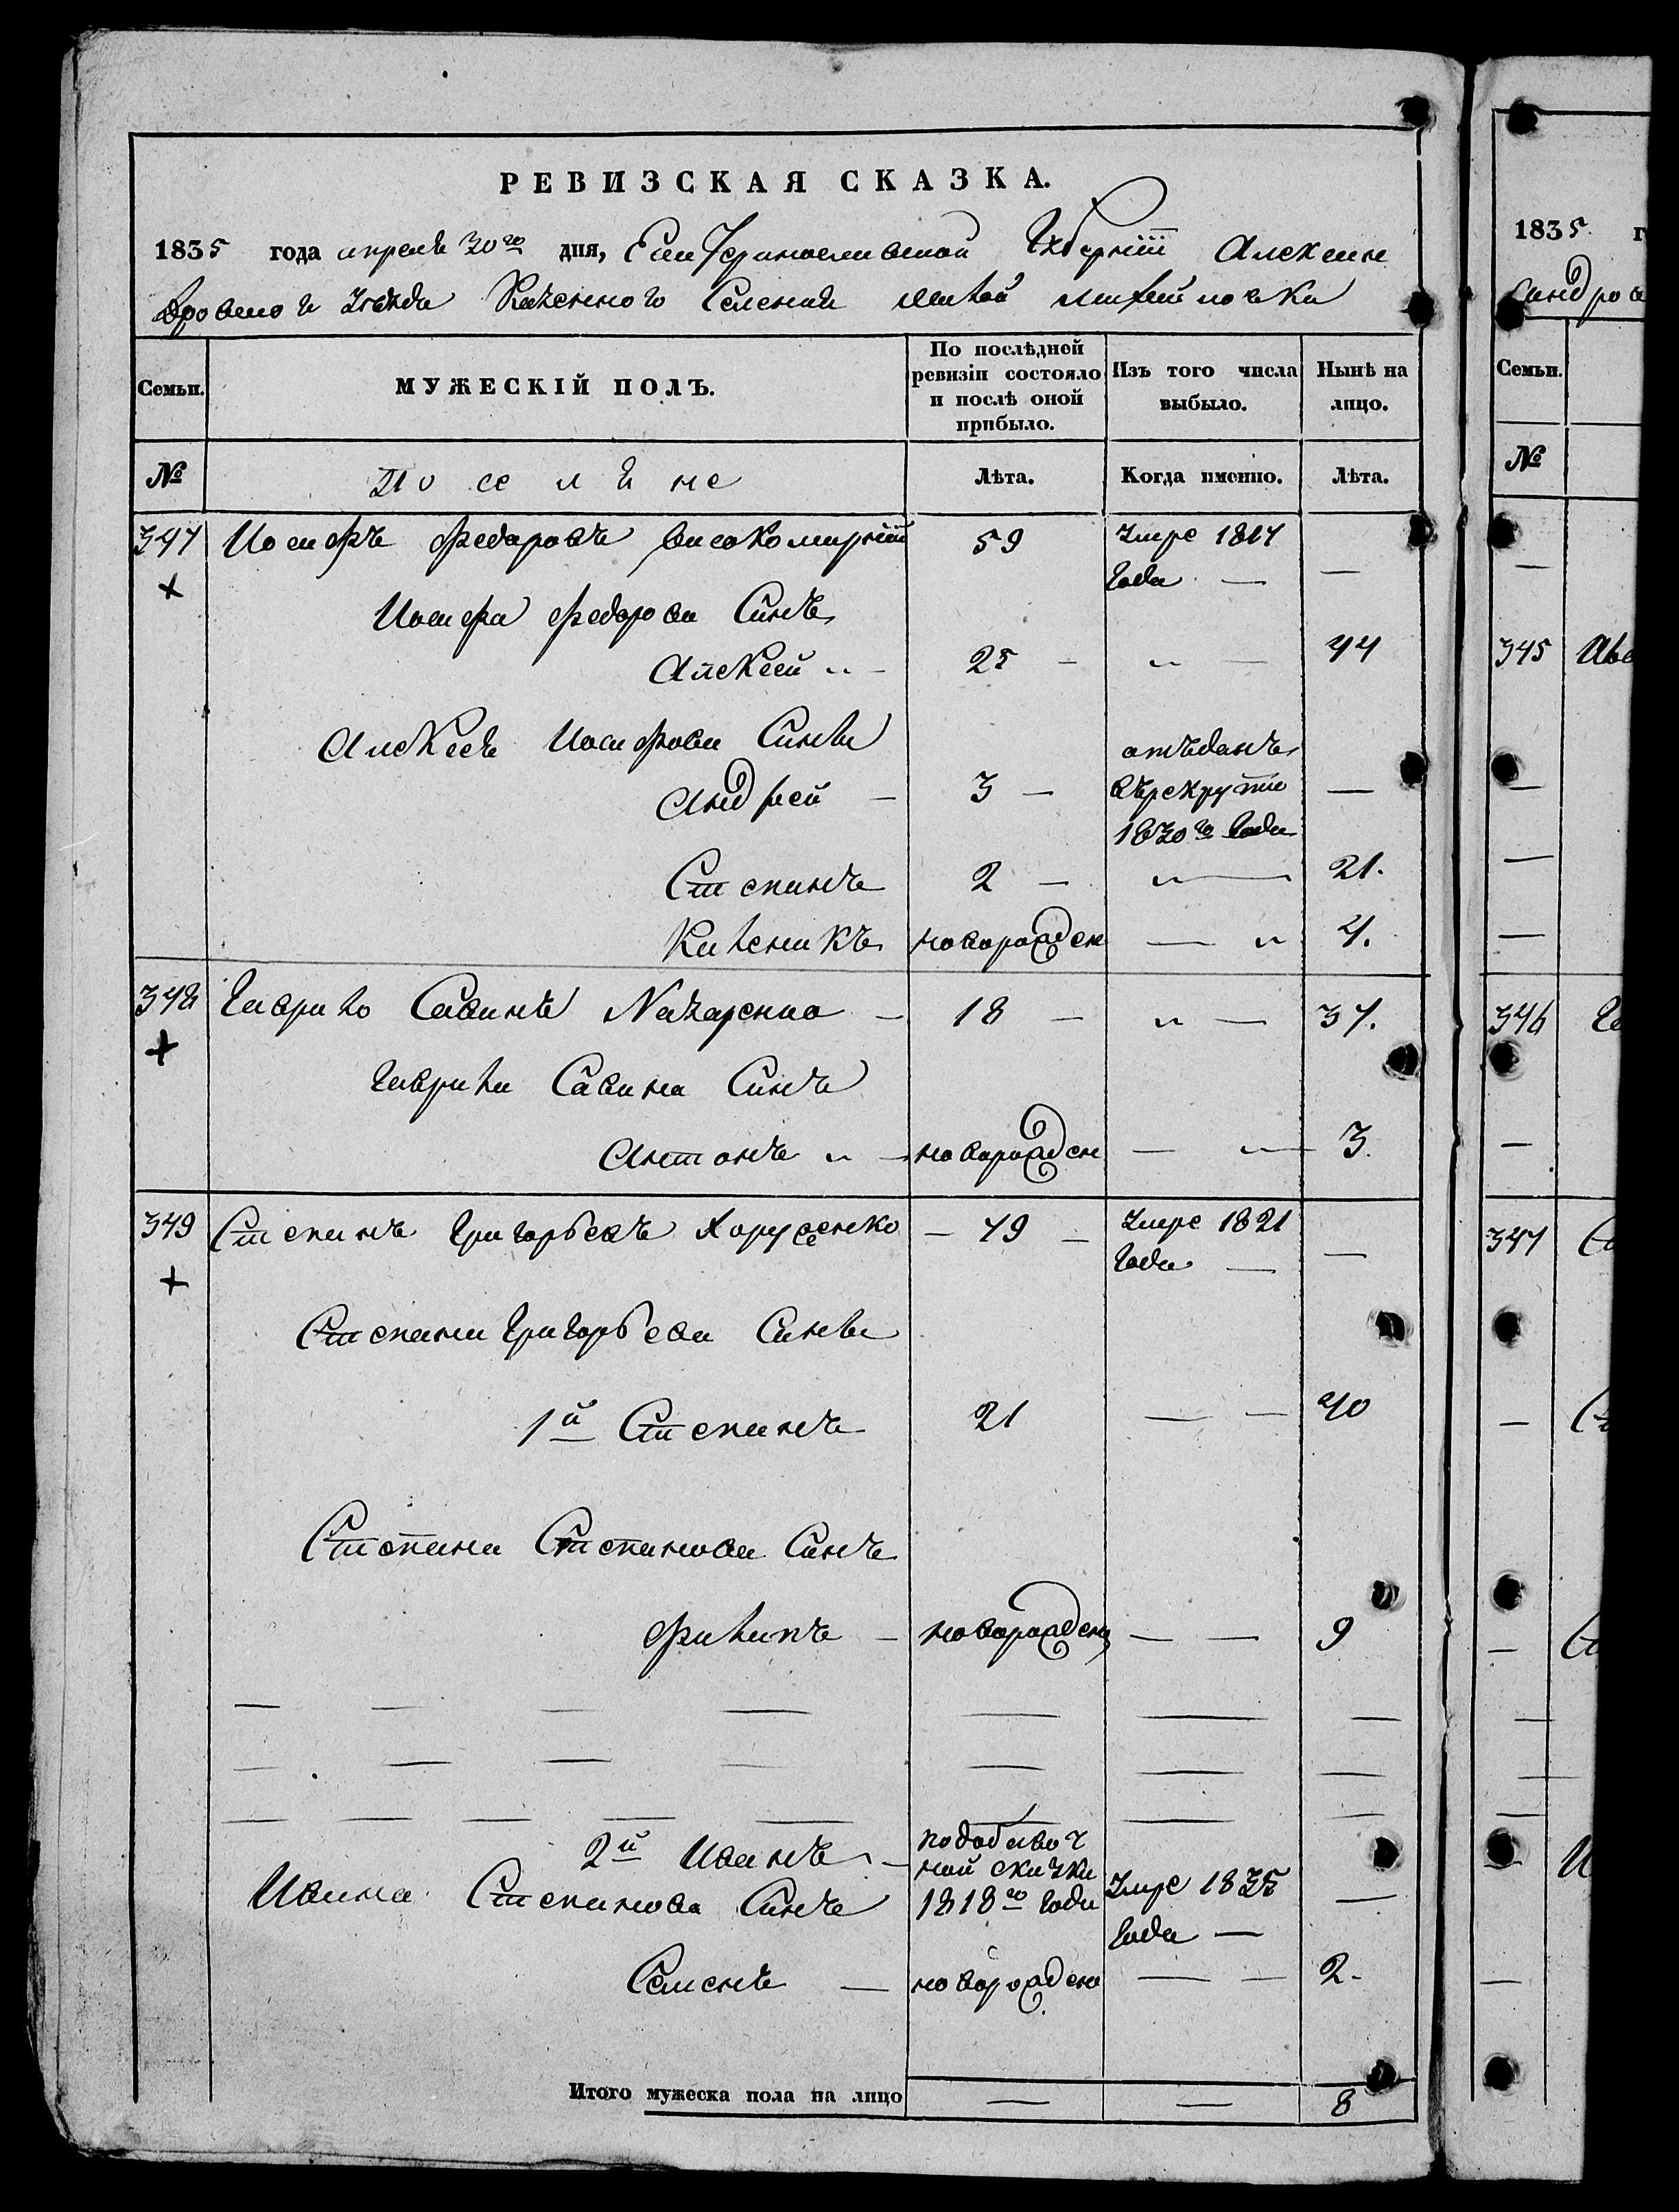 РЕВИЗСКАЯ СКАЗКА.
1835 года апреля 30го дня, Екатеринославской Губернїи Алексан
дровского уезда Казенного Селения Малой Михайловки
Семьи. МУЖЕСКІЙ ПОЛЪ. По послѣдней ревизіи состояло и послѣ оной прибыло. Изъ того числа выбыло. Нынѣ на лицо.
№ Лѣта. Когда именно. Лѣта.
347 Иосифъ Федаровъ високомирнїй 59 Умре 1817 Года —
Иосифа Федорова Синъ
Алексей 25 — 44
Алексея Иосифова Сини
Андрей — 3 — отъданъ въ рекруты 1830го Года —
Степанъ 2 — 21.
новорожден — 4.
348 Гаврило Савинъ Назаренко — 18 — 37.
Гаврила Савина Синъ
Антонъ новорожден — 3.
349 Степанъ Григорьевъ — 49 — Умре 1821 Года —
Степана Григорьева Сини
1й Степанъ 21 — 40
Степана Степанова Синъ
Филипъ — новорожденъ — 9
2й Иванъ — подобавочной скаски 1818го Года Умре 1835 Года —
Ивана Степанова Синъ
Семенъ — новорожден — 2.
Итого мужеска пола на лицо — — 8
1835 г
Сандров
Семьи.
№
345
346
347